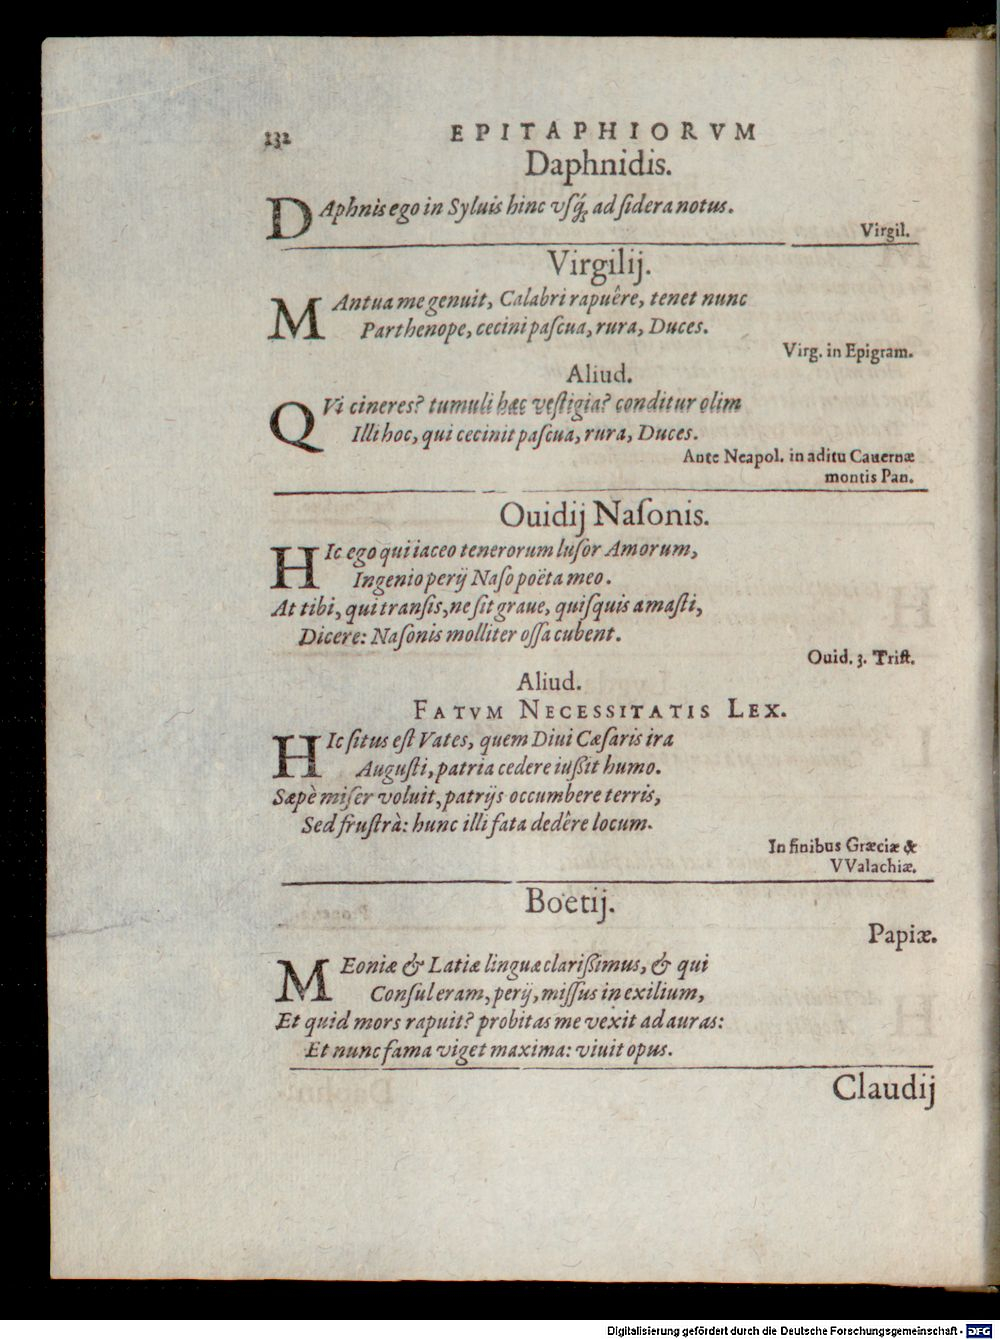 132 EPITAPHIORVM
Daphnidis.
DAphnis ego in Syluis hinc vſq́; ad ſidera notus.
Virgil.
Virgilij.
MAntua me genuit, Calabri rapuêre, tenet nunc
Parthenope, cecini paſcua, rura, Duces.
Virg. in Epigram.
Aliud.
QVi cineres? tumuli hæc veſtigia? conditur olim
Illi hoc, qui cecinit paſcua, rura, Duces.
Ante Neapol. in aditu Cauernæ
montis Pan.
Ouidij Naſonis.
HIc ego qui iaceo tenerorum luſor Amorum,
Ingenio perij Naſo poëta meo.
At tibi, qui tranſis, ne ſit graue, quiſquis amaſti,
Dicere: Naſonis molliter oſſa cubent.
Ouid. 3. Triſt.
Aliud.
FATVM NECESSITATIS LEX.
HIc ſitus eſt Vates, quem Diui Cæſaris ira
Auguſti, patria cedere iußit humo.
Sæpè miſer voluit, patrijs occumbere terris,
Sed fruſtrà: hunc illi fata dedêre locum.
In finibus Græciæ &
VValachiæ.
Boëtij.
Papiæ.
MEoniæ & Latiæ linguæ clarißimus, & qui
Conſul eram, perij, miſſus in exilium,
Et quid mors rapuit? probitas me vexit ad auras:
Et nunc fama viget maxima: viuit opus.
Claudij
Digitalisierung gefördert durch die Deutsche Forschungsgemeinschaft - DFG